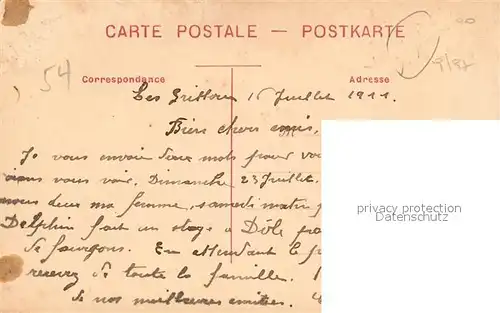 CARTE POSTALE — POSTKARTE
54
Correspondance Adresse
Les 16 Juillet 1911.
Bien chers amis,
Je vous envoie deux mots pour
vous voir. Dimanche 23 Juillet.
nous deux ma femme, samedi matin
Delphin fait un stage à Dôle
de fourgons. En attendant le
recevez de toute la famille.
de nos meilleures amitiés.
privacy protection
Datenschutz